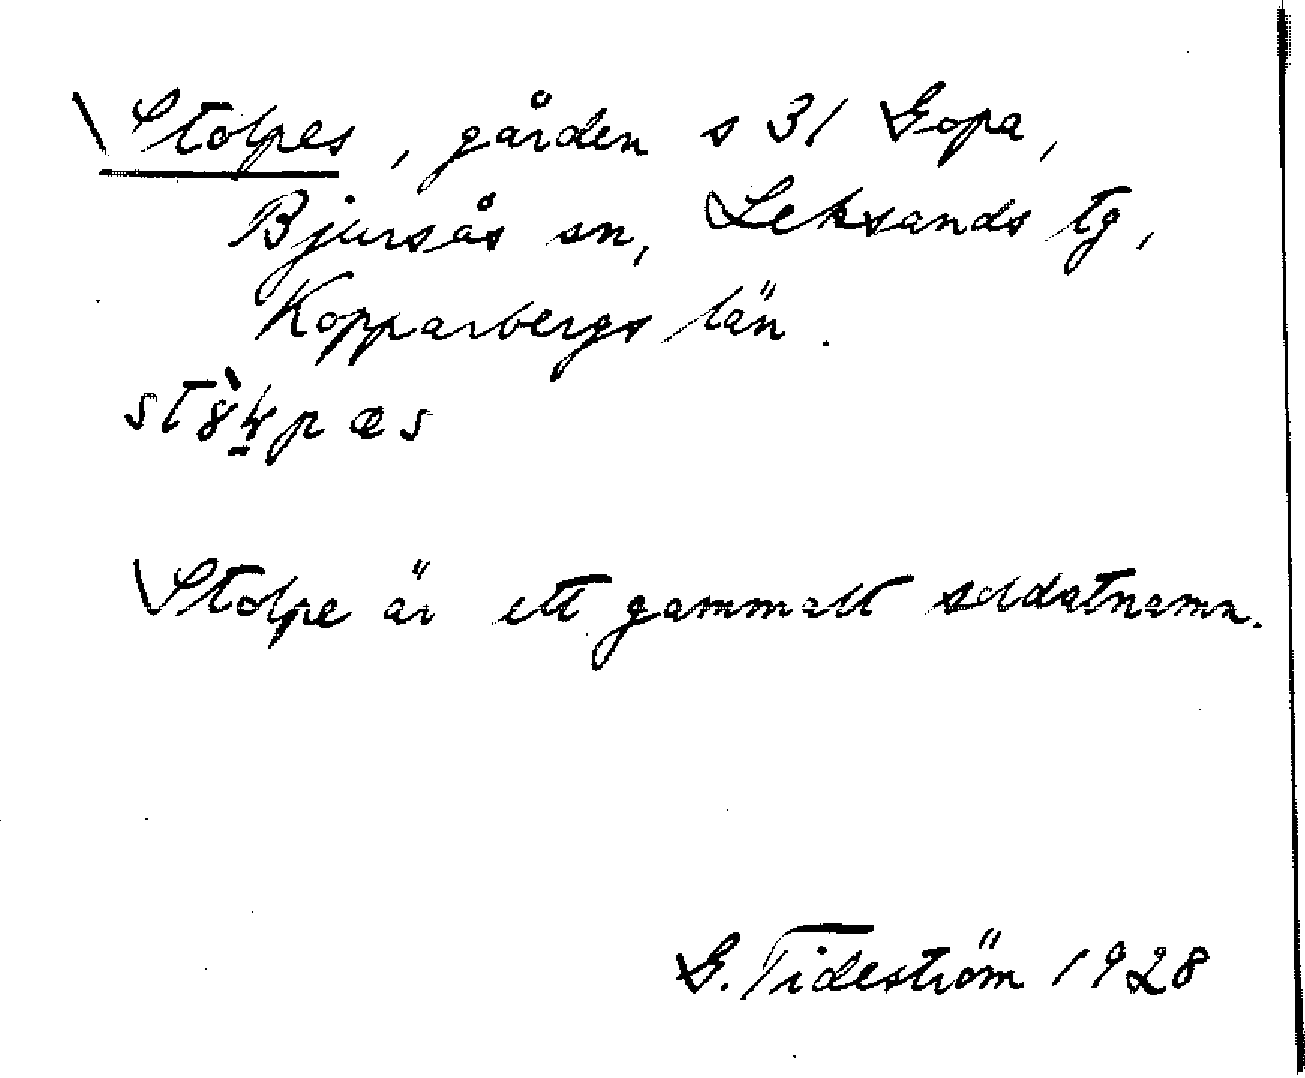 Stolpes, gården s 31 Gopa,
Bjursås sn, Leksands tg,
Kopparbergs län.
Stolpe är ett gammalt soldatnamn.
G. Tideström 1928